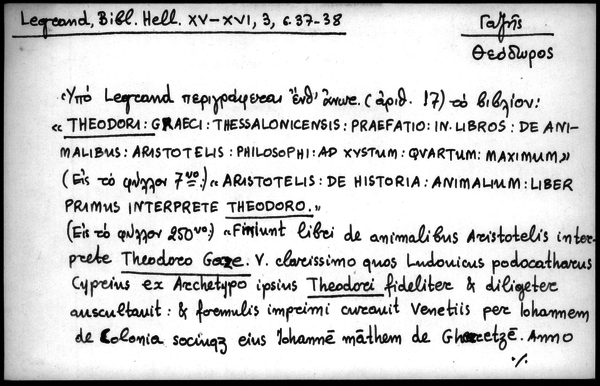 Legrand, Bibl. Hell. XV-XVI, 3, σ. 37-38
Γαζῆς
Θεόδωρος
Ὑπό Legrand περιγράφεται ἔνθ' ἀνωτ. (ἀριθ. 17) τό βιβλίον:
« THEODORI: GRAECI: THESSALONICENSIS: PRAEFATIO: IN. LIBROS: DE ANI-
MALIBUS: ARISTOTELIS: PHILOSOPHI: AD XYSTUM: QVARTUM: MAXIMUM»
(Εἰς τό φύλλον 7νο:) « ARISTOTELIS: DE HISTORIA: ANIMALIUM: LIBER
PRIMUS INTERPRETE THEODORO.»
(Εἰς τό φύλλον 250νο:) «Finiunt libri de animalibus Aristotelis inter-
prete Theodoro Gaze. V. clarissimo quos Ludovicus podocatharus
Cyprius ex Archetypo ipsius Theodori fideliter & diligeter
auscultauit: & formulis imprimi curauit Venetiis per Iohannem
de Colonia sociūqȝ eius Iohannē māthem de Gherretzē. Anno
·/.